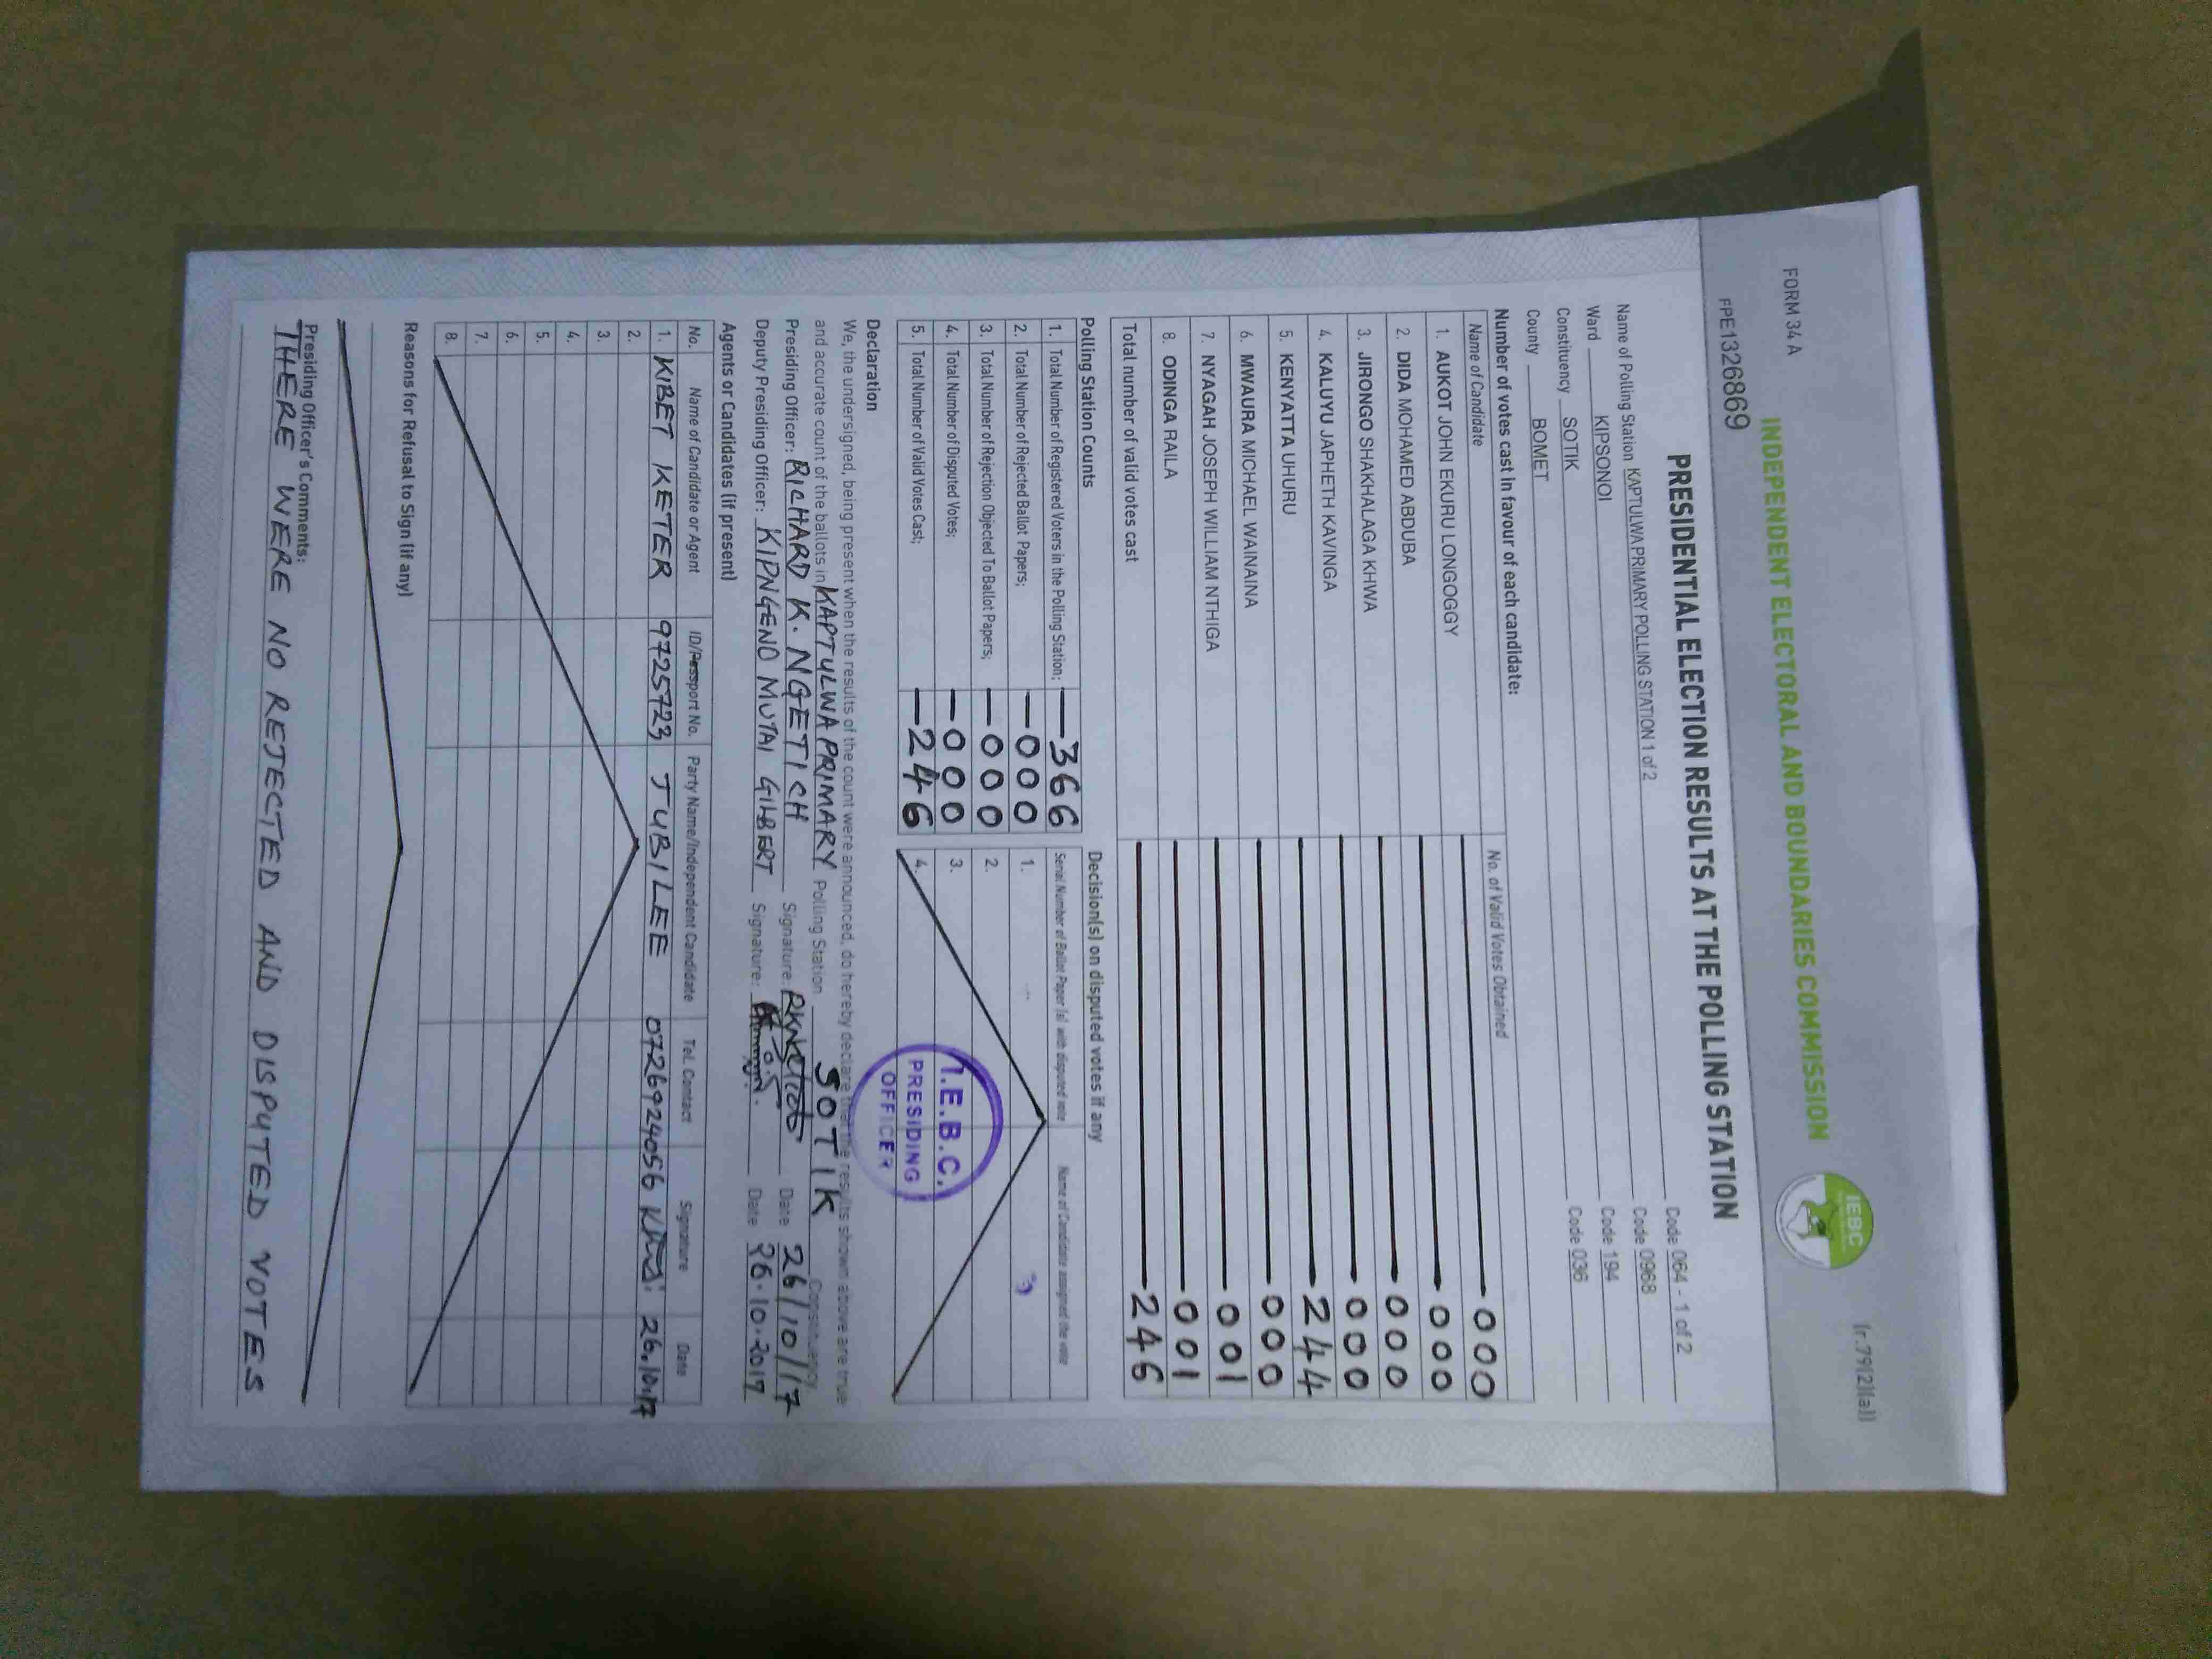 FORM 34 A
(r.79(2)(a))
INDEPENDENT ELECTORAL AND BOUNDARIES COMMISSION
IEBC
FPE1326869
PRESIDENTIAL ELECTION RESULTS AT THE POLLING STATION
Name of Polling Station KAPTULWA PRIMARY POLLING STATION 1 of 2 Code 064 - 1 of 2
Ward KIPSONOI Code 0968
Constituency SOTIK Code 194
County BOMET Code 036
Number of votes cast in favour of each candidate:
Name of Candidate No. of Valid Votes Obtained
1. AUKOT JOHN EKURU LONGOGGY 000
2. DIDA MOHAMED ABDUBA 000
3. JIRONGO SHAKHALAGA KHWA 000
4. KALUYU JAPHETH KAVINGA 000
5. KENYATTA UHURU 244
6. MWAURA MICHAEL WAINAINA 000
7. NYAGAH JOSEPH WILLIAM NTHIGA 001
8. ODINGA RAILA 001
Total number of valid votes cast 246
Polling Station Counts
1. Total Number of Registered Voters in the Polling Station: 366
2. Total Number of Rejected Ballot Papers; 000
3. Total Number of Rejection Objected To Ballot Papers; 000
4. Total Number of Disputed Votes; 000
5. Total Number of Valid Votes Cast; 246
Decision(s) on disputed votes if any
Serial Number of Ballot Paper (s) with disputed vote Name of Candidate assigned the vote
1.
2.
3.
4.
I.E.B.C.
PRESIDING
OFFICER
Declaration
We, the undersigned, being present when the results of the count were announced, do hereby declare that the results shown above are true
and accurate count of the ballots in KAPTULWA PRIMARY Polling Station SOTIK Constituency
Presiding Officer: RICHARD K. NGETICH Signature: Date 26/10/17
Deputy Presiding Officer: KIPNGENO MUTAI GILBERT Signature: Date 26.10.2017
Agents or Candidates (if present)
No. Name of Candidate or Agent ID/Passport No. Party Name/Independent Candidate Tel. Contact Signature Date
1. KIBET KETER 9725723 JUBILEE 0726924056 26.10.17
2.
3.
4.
5.
6.
7.
8.
Reasons for Refusal to Sign (if any)
Presiding Officer's Comments:
THERE WERE NO REJECTED AND DISPUTED VOTES